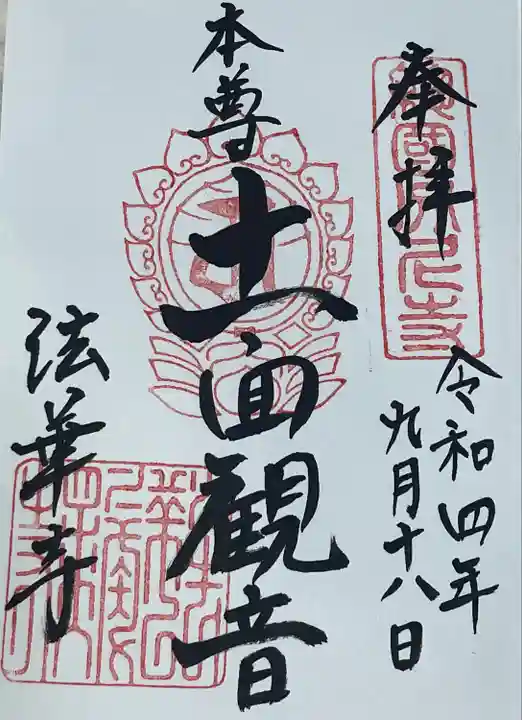 奉拝
令和四年
九月十八日
本尊
十一面観音
法華寺